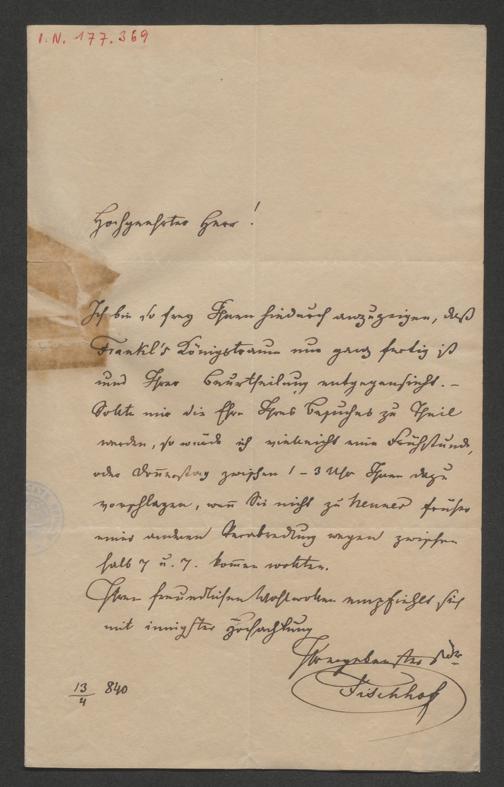 I.N. 177.369
Hochgeehrter Herr!
Ich bin so frey Ihnen hiedurch anzuzeigen, daß
Frankl's Königstraum nun ganz fertig ist
und Ihrer Beurtheilung entgegensieht. –
Sollte mir die Ehre Ihres Besuches zu Theil
werden, so würde ich vielleicht eine Frühstunde,
oder Donnerstag zwischen 1 – 3 Uhr Ihnen dazu
vorschlagen, wenn Sie nicht zu früher
einer anderen Verabredung wegen zwischen
halb 7 u. 7. kommen wollten.
Ihrem freundlichen Wohlwollen empfiehlt sich
mit innigster Hochachtung
Ihr ergebenster
Fischhof
13/4 840